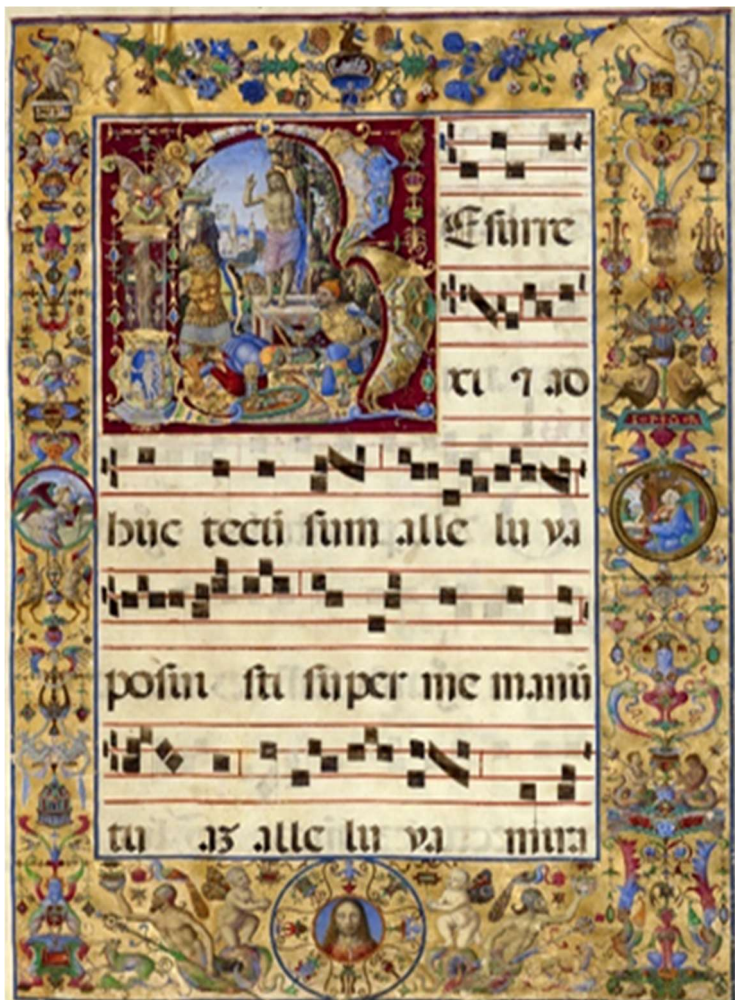 Esurre
xi ⁊ ad
huc tecū sum alle lu ya
posui sti super me manū
tu aʒ alle lu ya mira